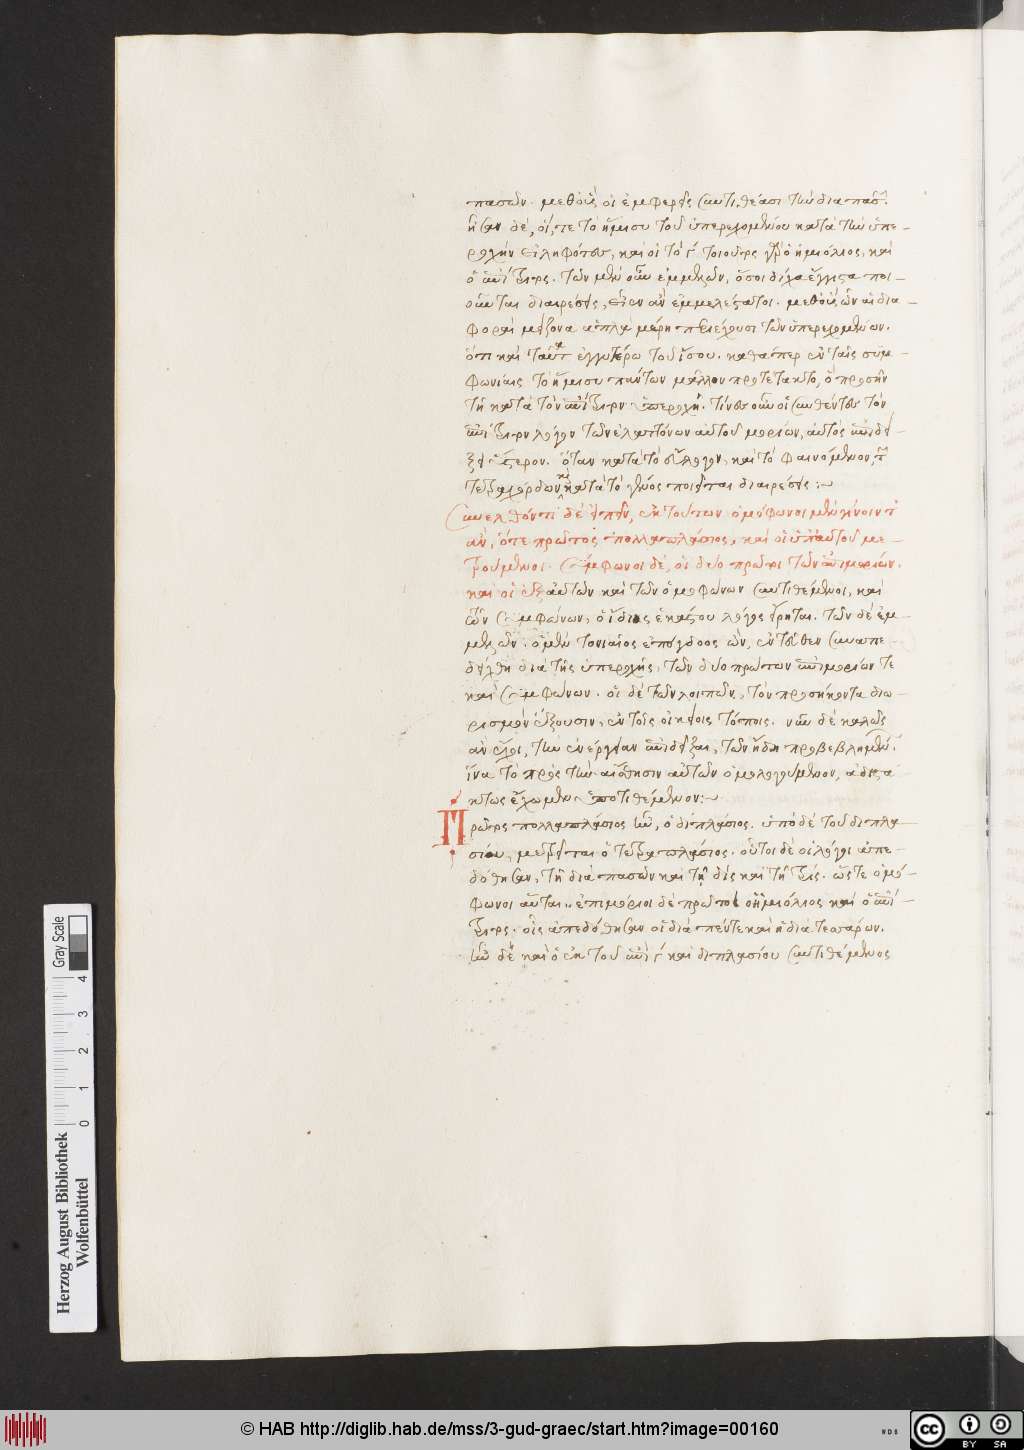 πασῶν. μεθ' οὓς οἱ ἐμφερεῖς συντιθέασι τὴν διὰ πασῶν.
ἦσαν δέ, οἵ, τε τὸ ἥμισυ τοῦ ὑπερεχομένου κατὰ τὴν ὑπε-
ροχὴν εἰληφότες, καὶ οἱ τὸ γ΄ τοιοῦτος γὰρ ὁ ἡμιόλιος, καὶ
ὁ ἐπίτριτος. τῶν μὲν οὖν ἐμμελῶν, ὅσοι δίχα ἔγγιστα ποι-
οῦνται διαιρέσεις, εἶεν ἂν ἐμμελέστατοι. μεθ' ὧν αἱ δια-
φοραὶ μείζονα ἁπλᾶ μέρη περιέχουσι τῶν ὑπερεχομένων.
ὅτι καὶ ταῦτα ἐγγυτέρω τοῦ ἴσου. καθάπερ ἐν ταῖς συμ-
φωνίαις τὸ ἥμισυ πάντων μᾶλλον
τῇ κατὰ τὸν ἐπίτριτον ὑπεροχῇ. τίνες οὖν οἱ συνθέντες τὸν
ἐπίτριτον λόγον τῶν ἐλαττόνων αὐτοῦ μορίων, αὐτὸς ἐπιδεί-
ξει ὕστερον. ὅταν κατὰ τὸ εὔλογον, καὶ τὸ φαινόμενον, τῶν
τετραχόρδων καὶ κατὰ τὸ γένος ποιεῖται διαιρέσεις :~
Συνελθόντι δὲ εἰπεῖν, ἐκ τούτων ὁμόφωνοι μὲν γίνοιντ'
ἄν, ὅτε πρῶτος πολλαπλάσιος, καὶ οἱ ὑπ' αὐτοῦ με-
τρούμενοι. σύμφωνοι δέ, οἱ δύο πρῶτοι τῶν ἐπιμορίων.
καὶ οἱ ἐξ αὐτῶν καὶ τῶν ὁμοφώνων συντιθέμενοι, καὶ
τῶν συμφώνων, ὁ ἴδιος ἑκάστου λόγος εἴρηται. τῶν δὲ ἐμ-
μελῶν. ὁ μὲν τονιαῖος ἐπόγδοος ὤν, ἐντεῦθεν συναπε-
δείχθη διὰ τῆς ὑπεροχῆς, τῶν δύο πρώτων ἐπιμορίων τε
καὶ συμφώνων. οἱ δὲ τῶν λοιπῶν, τὸν προσήκοντα διο-
ρισμὸν ἕξουσιν, ἐν τοῖς οἰκείοις τόποις. νῦν δὲ καλῶς
ἂν ἔχοι, τὴν ἐνέργειαν ἐπιδεῖξαι, τῶν ἤδη προβεβλημένων.
ἵνα τὸ πρὸς τὴν αἴσθησιν αὐτῶν ὁμολογούμενον, ἀδιστά-
κτως ἔχωμεν ὑποτιθέμενον :~
Πρῶτος πολλαπλάσιος ἦν, ὁ διπλάσιος. ὑπὸ δὲ τοῦ διπλα-
σίου, μετρεῖται ὁ τετραπλάσιος. οὗτοι δὲ οἱ λόγοι ἀπε-
δόθησαν, τῇ διὰ πασῶν καὶ τῇ δὶς καὶ τῇ τρίς. ὥστε ὁμό-
φωνοι αὗται .. ἐπιμόριοι δὲ πρῶτοι ὁ ἡμιόλιος καὶ ὁ ἐπί-
τριτος. οἷς ἀπεδόθησαν οἱ διὰ πέντε καὶ ἡ διὰ τεσσάρων.
ἦν δὲ καὶ ὁ ἐκ τοῦ ἐπὶ γ΄ καὶ διπλασίου συντιθέμενος
Herzog August Bibliothek
Wolfenbüttel
0 1 2 3 4
Gray Scale
© HAB http://diglib.hab.de/mss/3-gud-graec/start.htm?image=00160
WDB
cc BY SA